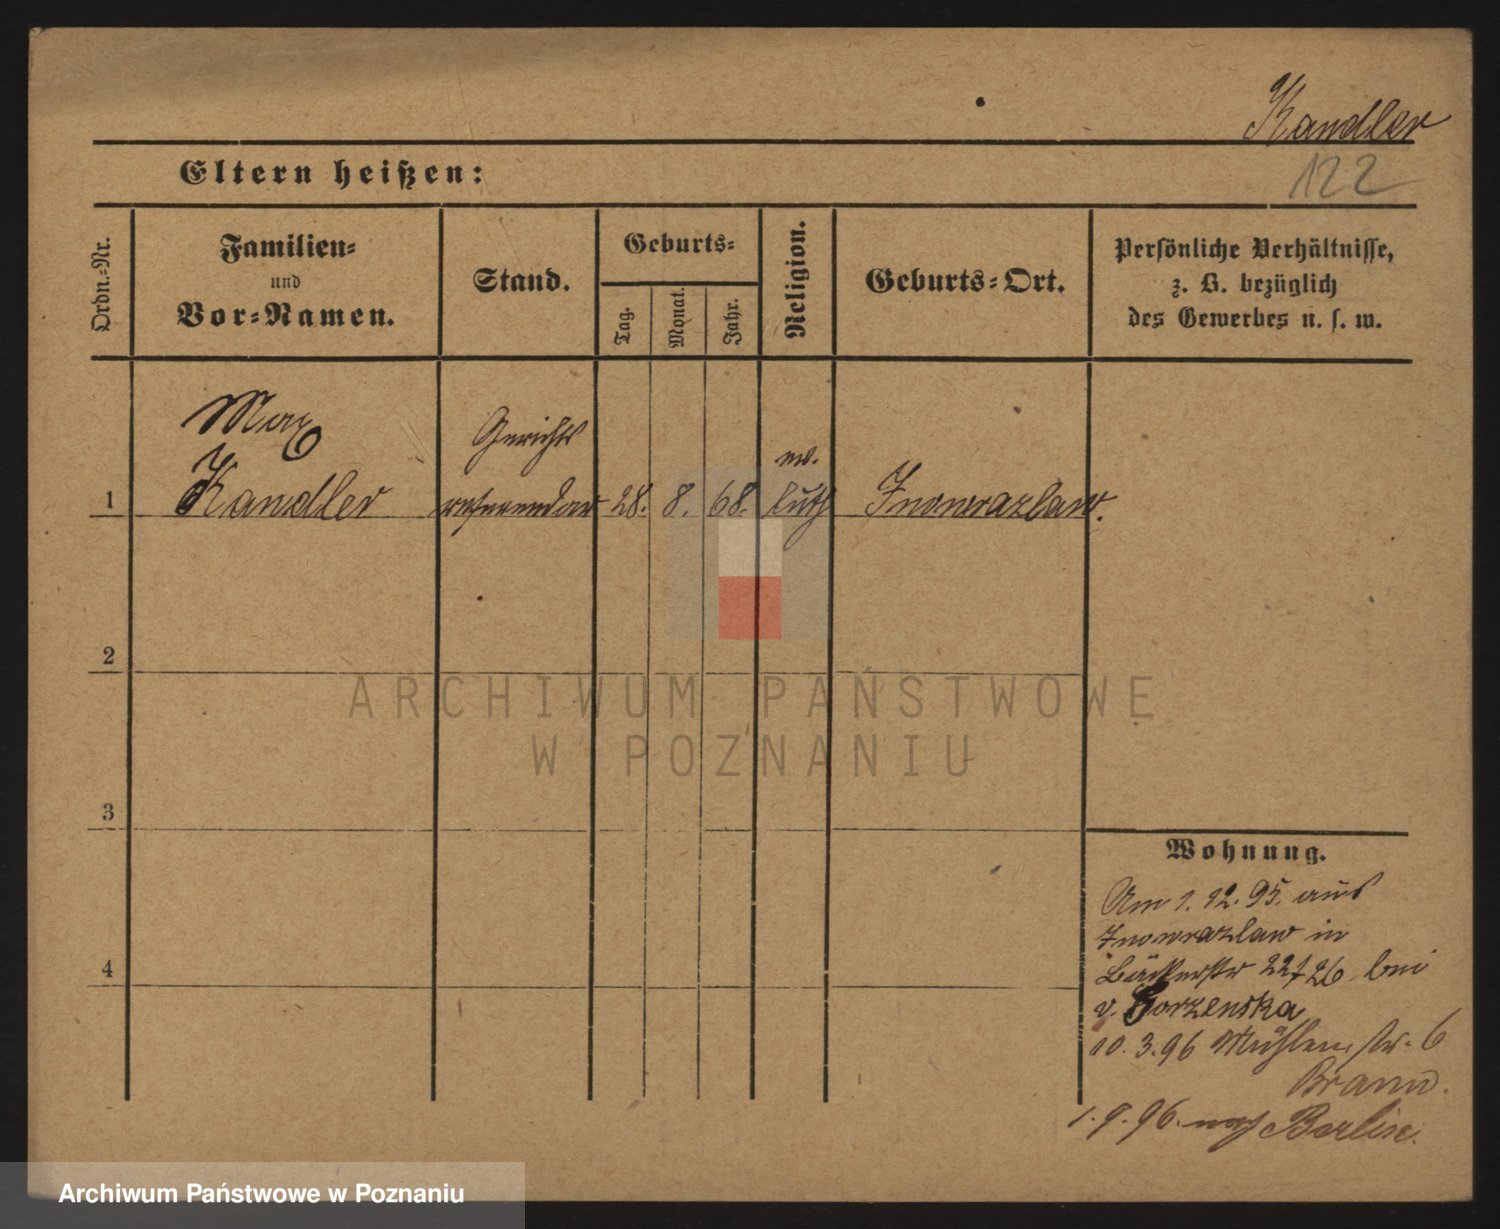 Kandler
122
Eltern heißen:
Ordn.-Nr.
Familien-
und
Vor-Namen.
Stand.
Geburts-
Tag.
Monat.
Jahr.
Religion.
Geburts-Ort.
Persönliche Verhältnisse,
z. B. bezüglich
des Gewerbes u. s. w.
Max
Gerichts
ev.
1 Kandler referendar 28. 8. 68. luth Inowrazlaw.
2
ARCHIWUM PAŃSTWOWE
W POZNANIU
3
Wohnung.
Am 1. 12. 95. aus
Inowrazlaw in
4
Bäckerstr 22/26 bei
v. Gorzenska
10. 3. 96 Mühlenstr. 6
Brann.
1. 9. 96. nach Berlin.
Archiwum Państwowe w Poznaniu